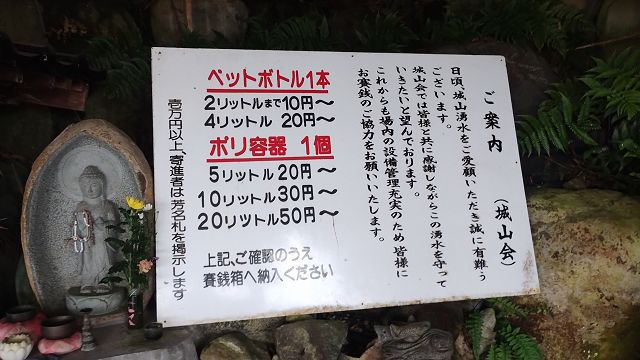 ご案内
(城山会)
日頃、城山湧水をご愛顧いただき誠に有難う
ございます。
城山会では皆様と共に感謝しながらこの湧水を守って
いきたいと望んでおります。
これからも場内の設備管理充実のため皆様に
お賽銭のご協力をお願いいたします。
ペットボトル1本
2リットルまで10円〜
4リットル 20円〜
ポリ容器 1個
5リットル 20円〜
10リットル30円〜
20リットル50円〜
上記、ご確認のうえ
賽銭箱へ納入ください
壱万円以上、寄進者は芳名札を掲示します